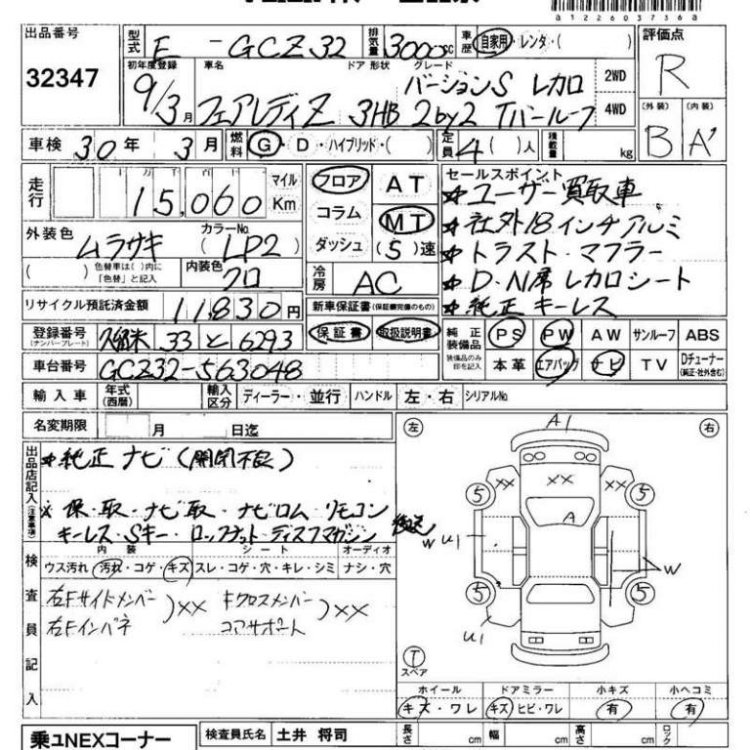 a1226037368
出品番号 32347
型式 E - GCZ32 排気量 3000cc 車歴 自家用・レンタ・( ) 評価点 R
初年度登録 9/3月 車名 フェアレディZ ドア 形状 3HB グレード バージョンS レカロ 2by2 Tバールーフ 2WD 4WD
(外装) B (内装) A'
車検 30年 3月 燃料 G・D・ハイブリッド・( ) 定員 4( )人 積載量 kg
走行 15,060 マイル Km
フロア コラム ダッシュ AT MT (5)速
セールスポイント
★ユーザー買取車
★社外18インチアルミ
★トラスト・マフラー
★D・N席レカロシート
★純正キーレス
外装色 ムラサキ カラーNo. (LP2)
( ) 色替車は( )内に「色替」と記入 内装色 クロ
冷房 AC
リサイクル預託済金額 11,830円 新車保証書(保証継続のもの)
登録番号 (ナンバープレート) 久留米 33 と 6293 保証書 取扱説明書
純正装備品 PS PW AW サンルーフ ABS
装備品のみ印を記入 本革 エアバッグ ナビ TV Dチューナー(純正・社外含む)
車台番号 GCZ32-563048
輸入車 年式(西暦) 輸入区分 ディーラー・並行 ハンドル 左・右 シリアルNo.
名変期限 月 日迄
出品店記入(注意事項)
★純正ナビ(開閉不良)
※保・取・ナビ取・ナビロム・リモコン
キーレス・Sキー・ロックナット・ディスクマガジン 後送
検査員記入
内装 シート オーディオ
ウス汚れ・汚れ・コゲ・キズ スレ・コゲ・穴・キレ・シミ ナシ・穴
右Fサイドメンバー 右Fインパネ )×× Fクロスメンバー コアサポート )××
左 右
A1
5 ×× ×× 5
A
W U1 W
5 5
U1
T スペア
ホイール ドアミラー 小キズ 小ヘコミ
キズ・ワレ キズ・ヒビ・ワレ 有 有
乗ュNEXコーナー 検査員氏名 土井 将司 長さ cm 幅 cm 高さ cm ロック